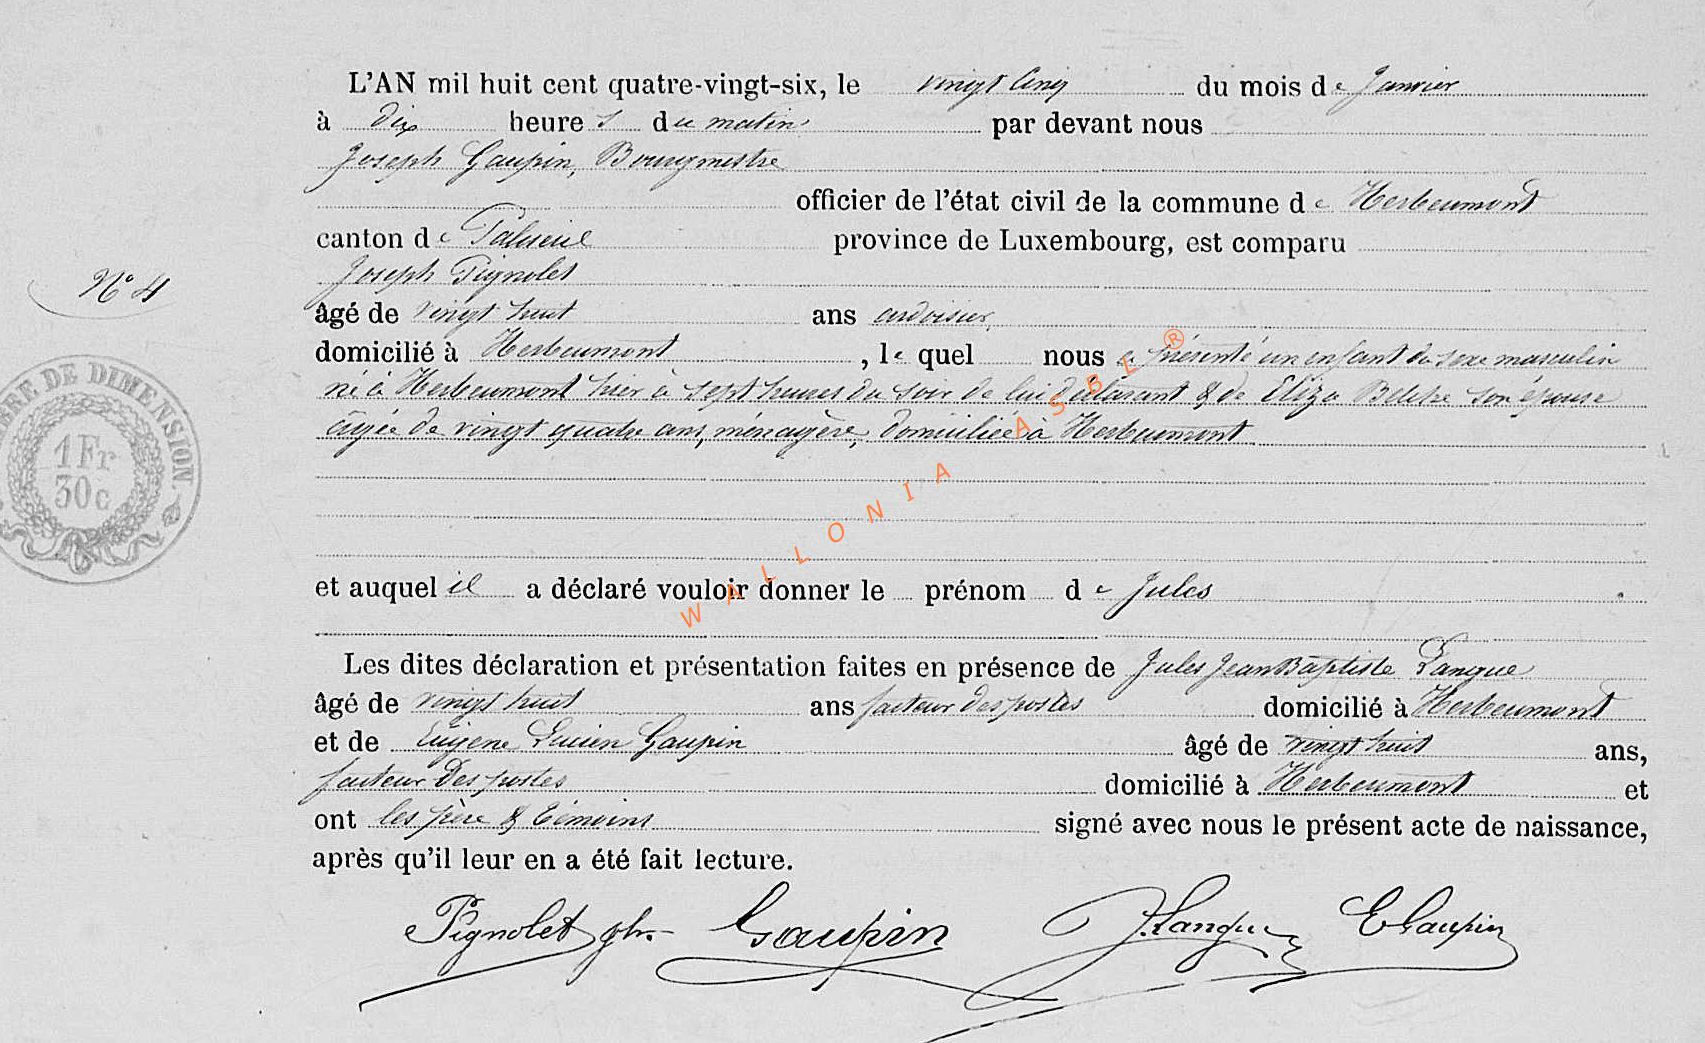 L'AN mil huit cent quatre-vingt-six, le vingt cinq du mois de Janvier
à dix heures du matin par devant nous
Joseph Gaupin, Bourgmestre
officier de l'état civil de la commune de Herbeumont
canton de Paliseul province de Luxembourg, est comparu
Joseph Pignolet
N° 4
âgé de vingt huit ans ardoisier,
domicilié à Herbeumont, lequel nous a présenté un enfant du sexe masculin
né à Herbeumont hier à sept heures du soir de lui déclarant & de Eliza son épouse
âgée de vingt quatre ans, ménagère, domiciliée à Herbeumont
TIMBRE DE DIMENSION
1 Fr
30c
WALLONIA ASBL ®
et auquel il a déclaré vouloir donner le prénom de Jules
Les dites déclaration et présentation faites en présence de Jules Jean Baptiste Langue
âgé de vingt huit ans facteur des postes domicilié à Herbeumont
et de Eugène Lucien Gaupin âgé de vingt huit ans,
facteur des postes domicilié à Herbeumont et
ont les père & témoins signé avec nous le présent acte de naissance,
après qu'il leur en a été fait lecture.
Pignolet jph. Gaupin J. Langue E Gaupin